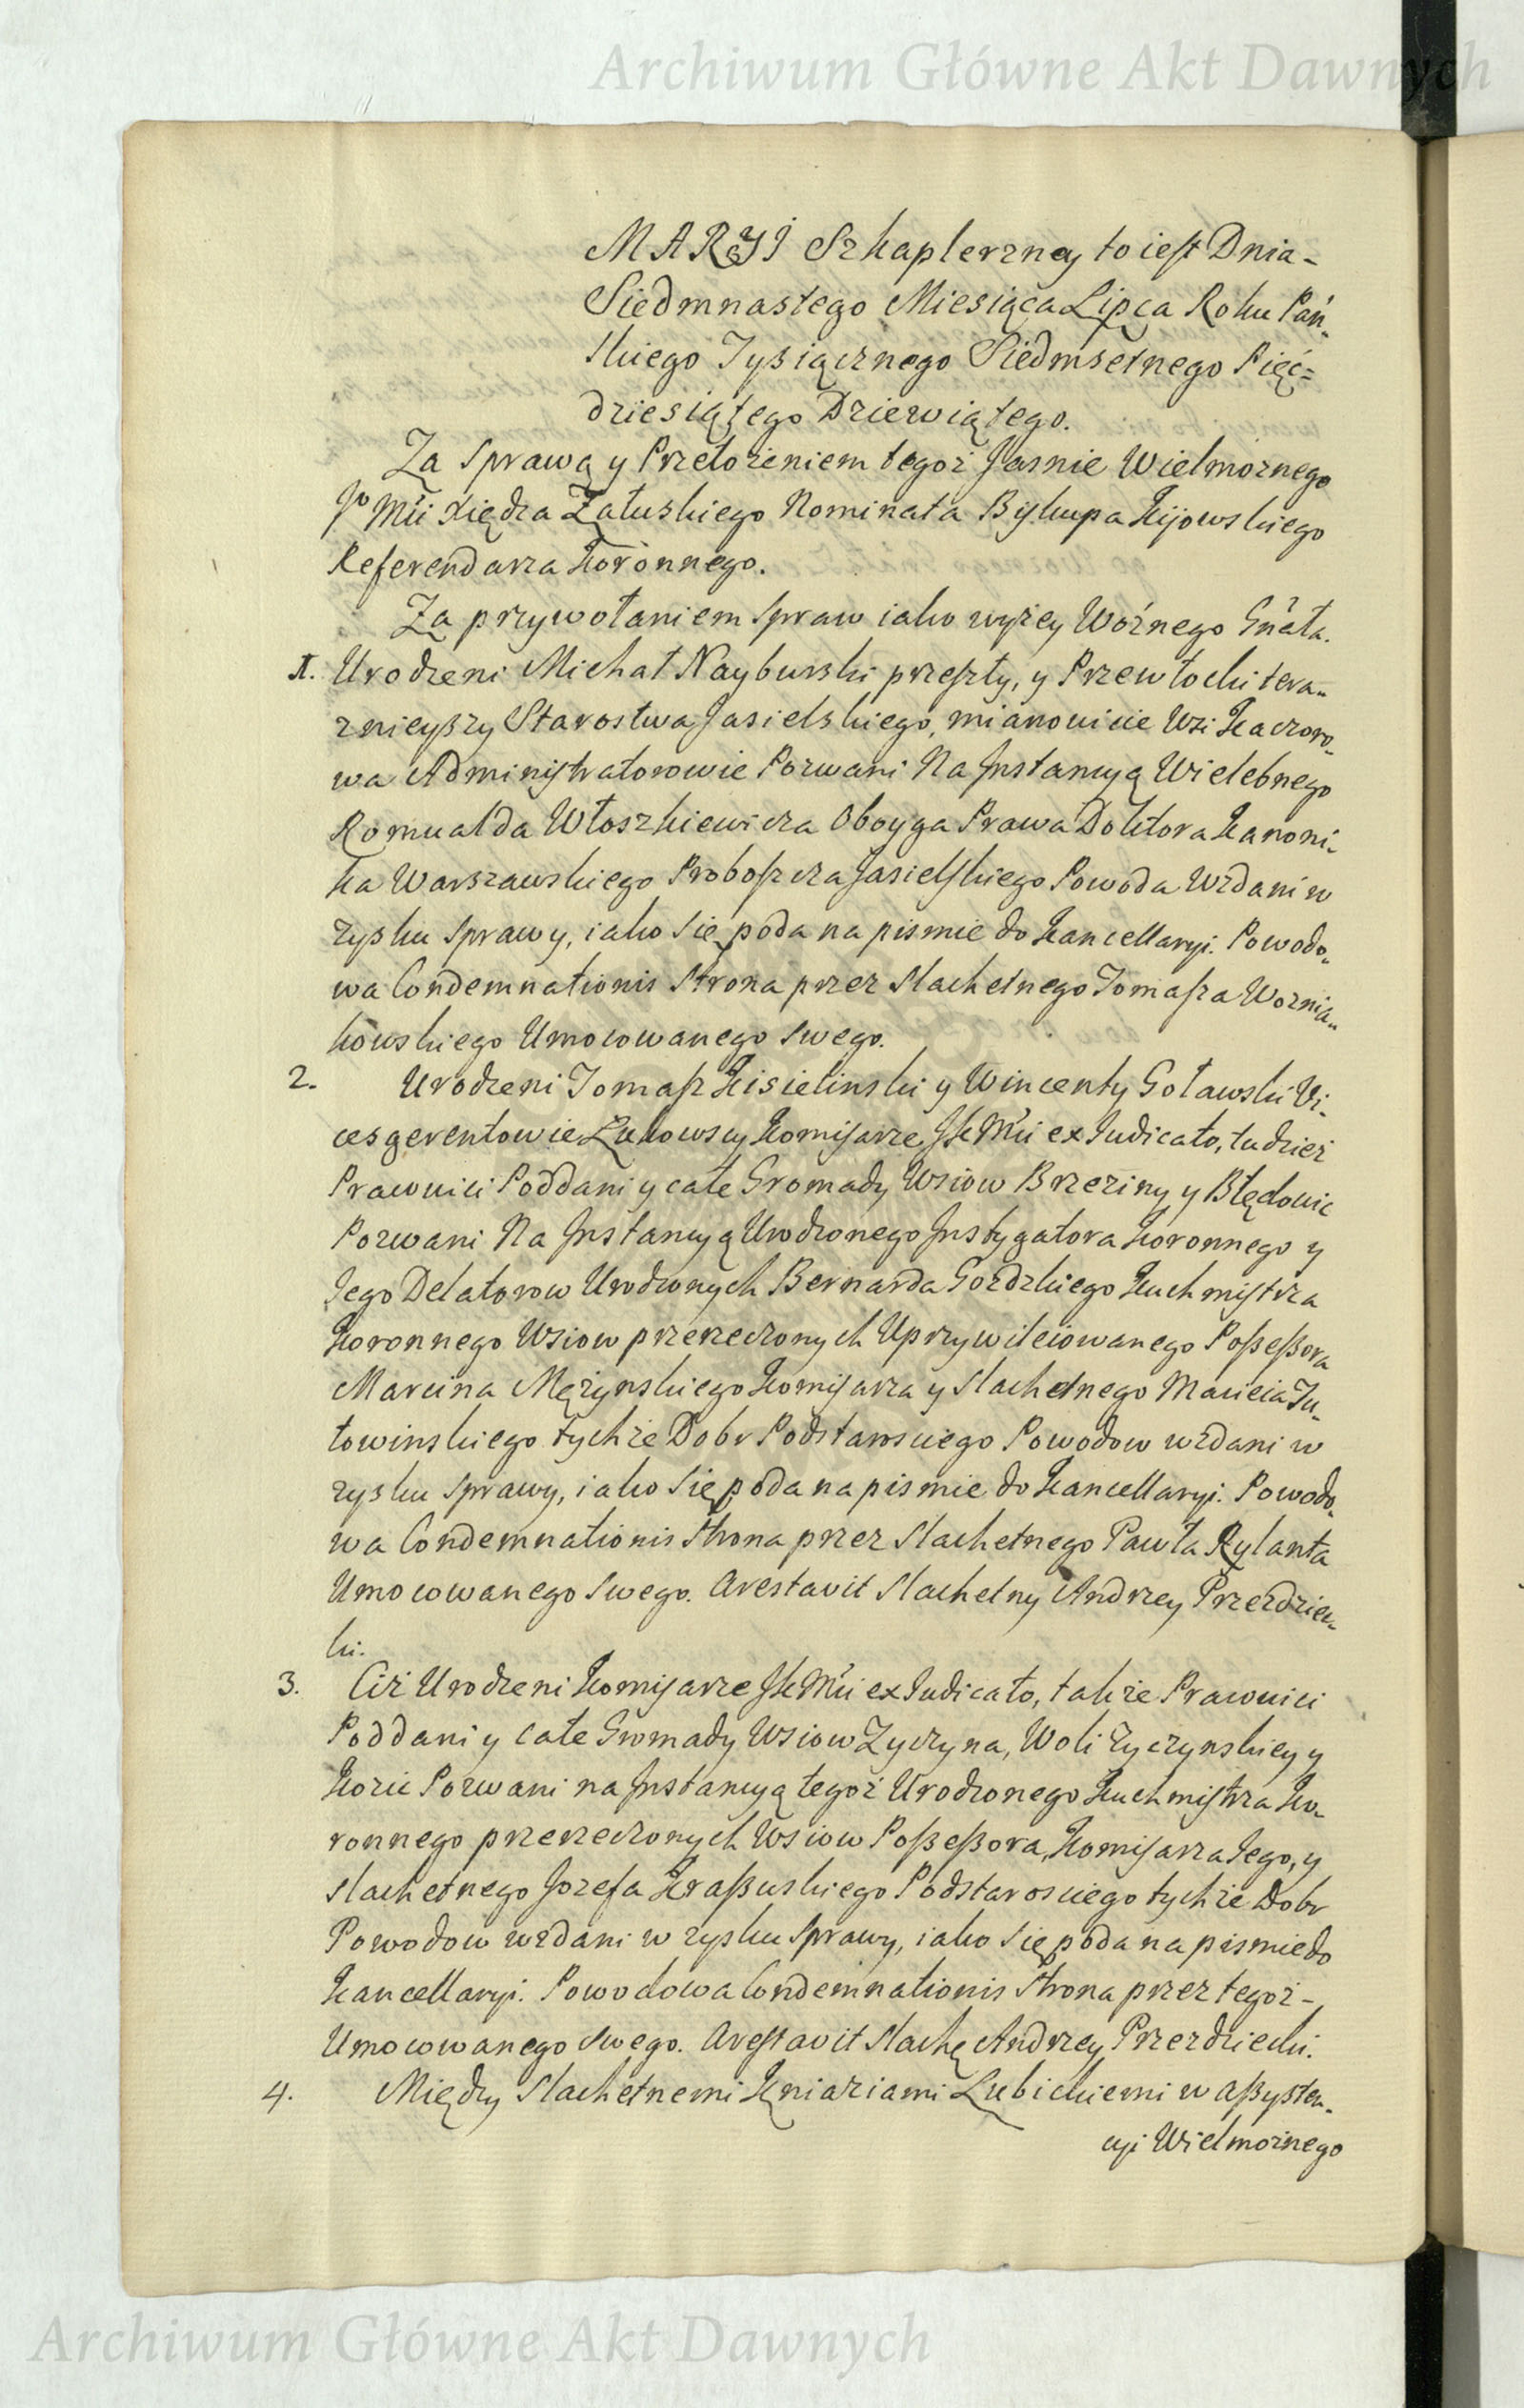 Archiwum Główne Akt Dawnych
MARYI Szkaplerzney to iest Dnia-
Siedmnastego Miesiąca Lipca Roku Pań-
skiego Tysiącznego Siedmsetnego Pięć=
dziesiątego Dziewiątego.
Za Sprawą y Przełożeniem tegoż Jasnie Wielmożnego
Jo Mći Xiędza Załuskiego Nominata Biskupa Kijowskiego
Referendarza Koronnego.
Za przywołaniem Spraw iako wyżey Woźnego Gńała.
1. Urodzeni Michał Nayburski przeszły, y Przewłocki tera-
znieyszy Starostwa Jasielskiego, mianowicie Wsi Kaczoro-
wa Administratorowie Pozwani Na Instancyą Wielebnego
Romualda Włoszkiewicza Oboyga Prawa Doktora Kanoni-
ka Warszawskiego Proboszcza Jasielskiego Powoda Wzdani w
zysku Sprawy, iako Się poda na pismie do Kancellaryi. Powodo-
wa Condemnationis Strona przez Slachetnego Tomasza Woznia-
kowskiego Umocowanego Swego.
2. Urodzeni Tomasz Kisielinski y Wincenty Goławski Vi-
cesgerentowie Łukowscy Komisarze JKMći ex Judicato, tudzież
Prawnici Poddani y całe Gromady Wsiow Brzeziny y Błędowic
Pozwani Na Instancyą Urodzonego Instygatora Koronnego y
Jego Delatorow Urodzonych Bernarda Gozdzkiego Kuchmistrza
Koronnego Wsiow przerzeczonych Uprzywileiowanego Possessora
Marcina Mężynskiego Komisarza y Slachetnego Macieia Ju-
towinskiego tychże Dobr Podstarosciego Powodow wzdani w
zysku Sprawy, iako Się poda na pismie do Kancellaryi. Powodo-
wa Condemnationis Strona przez Slachetnego Pawła Rylanta
Umocowanego Swego. Arestavit Slachetny Andrzey Przezdziec-
ki.
3. Ciż Urodzeni Komisarze JKMći ex Judicato, także Prawnici
Poddani y całe Gromady Wsiow Zyczyna, Woli Zyczynskiey y
Kozic Pozwani na Instancyą tegoż Urodzonego Kuchmistrza Ko-
ronnego przerzeczonych Wsiow Possessora, Komisarza Jego, y
Slachetnego Jozefa Krassuskiego Podstarosciego tychże Dobr
Powodow wzdani w zysku Sprawy, iako Się poda na pismie do
Kancellaryi. Powodowa Condemnationis Strona przez tegoż-
Umocowanego Swego. Arestavit Slache Andrzey Przezdziecki.
4. Między Slachetnemi Kniaziami Łubickiemi w assysten-
cyi Wielmożnego
Archiwum Główne Akt Dawnych